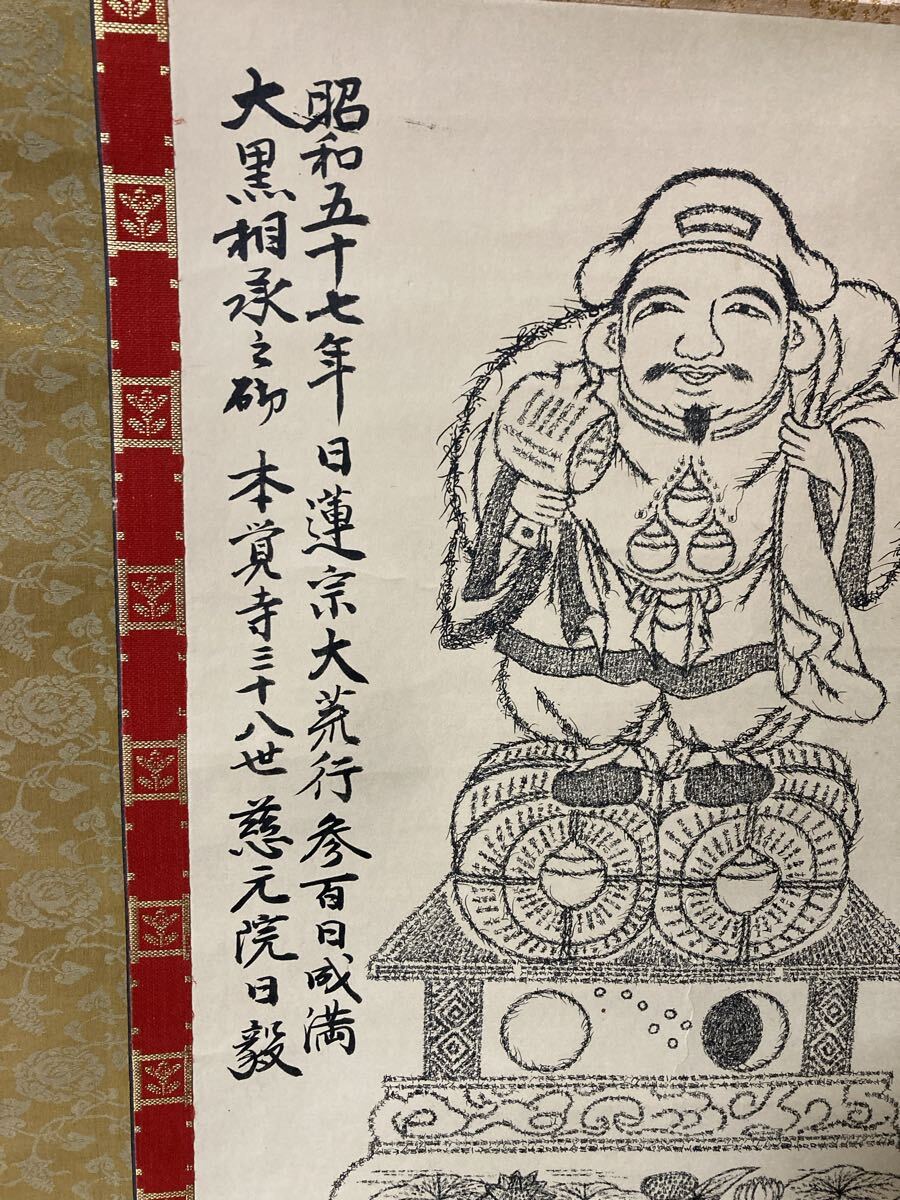 昭和五十七年 日蓮宗大荒行参百日成満
大黒相承之砌 本覚寺三十八世 慈元院日毅